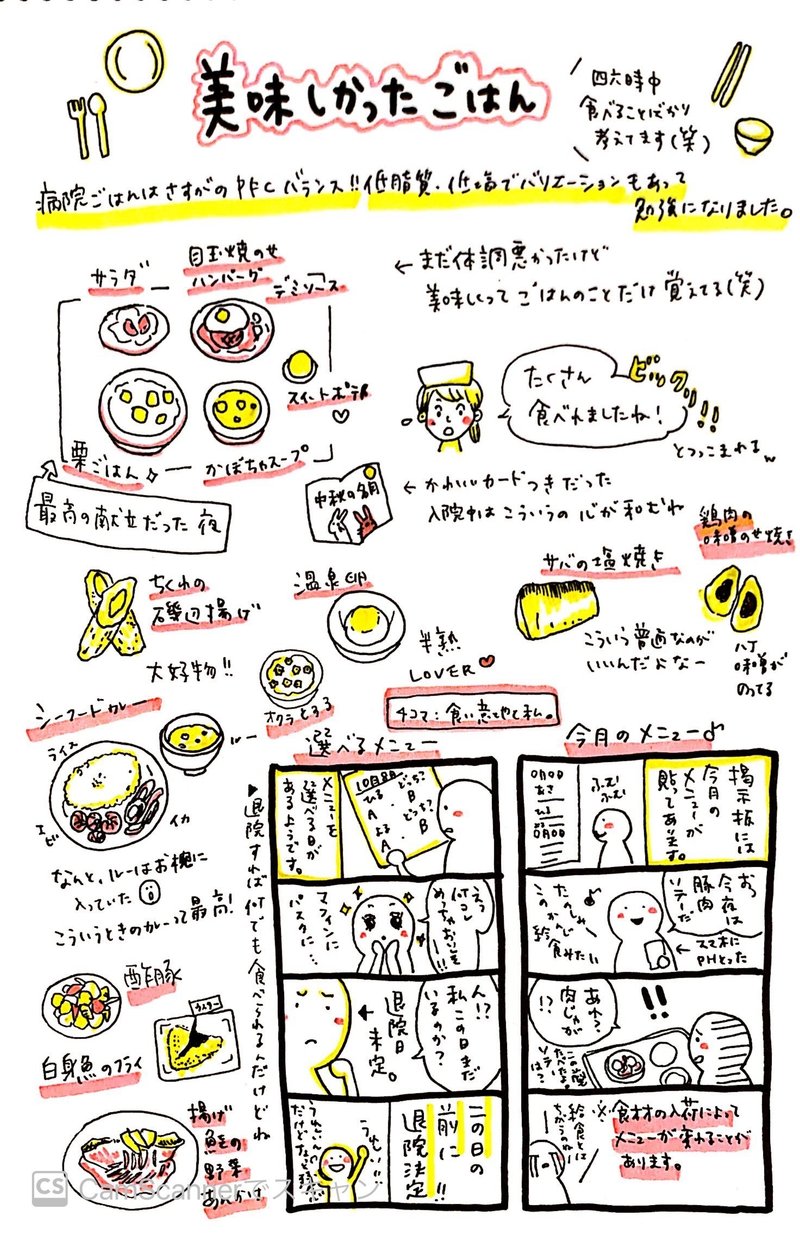 美味しかったごはん
四六時中
食べることばかり
考えてます(笑)
病院ごはんはさすがのPFCバランス!!低脂質・低塩でバリエーションもあって
勉強になりました。
サラダ
目玉焼のせ
ハンバーグ
デミソース
スイートポテト
栗ごはん
かぼちゃスープ
最高の献立だった夜
←まだ体調悪かったけど
美味しくって ごはんのことだけ覚えてる(笑)
たくさん
食べれましたね!
ビックリ!!
とつっこまれるw
中秋の名月
←かわいいカードつきだった
入院中はこういうの心が和むわ
ちくわの
磯辺揚げ
大好物!!
温泉卵
半熟
LOVER
オクラとする
サバの塩焼き
こういう普通なのが
いいんだよなー
鶏肉の
味噌のせ焼き
八丁
味噌が
のってる
シーフードカレー
ライス
ルー
エビ
イカ
なんと、ルーはお椀に
入っていた
こういうときのカレーって最高!
酢豚
ウスター
白身魚のフライ
揚げ
魚の
野菜
あんかけ
4コマ:食い意地と私。
選べるメニュー
▶退院すれば何でも食べられるんだけどね
メニューを
選べる日が
あるようです。
10月8日
ひる どっち?
A B
よる どっち?
A B
えっ
何コレ
めっちゃおいしそ!!
マフィンに
パスタに…
人!?
私この日まだ
いるのか?
退院日
未定。
この日の
前に
退院決定!!
うれしー
うれしいん
だけどなんか複雑
今月のメニュー♪
掲示板には
今月の
メニューが
貼ってあります。
〇月〇日
あさ
ひる
〇月〇日
ふむ
ふむ
おっ
今夜は
豚肉
ソテーだ
たのしみ
このかんじ
給食みたい
←スマホに
PHとった
あれ?
肉じゃが
!?
!!
ソテーは?
※食材の入荷によって
メニューが変わることが
あります。
給食とは
ちがうのねー
CS CamScannerでスキャン